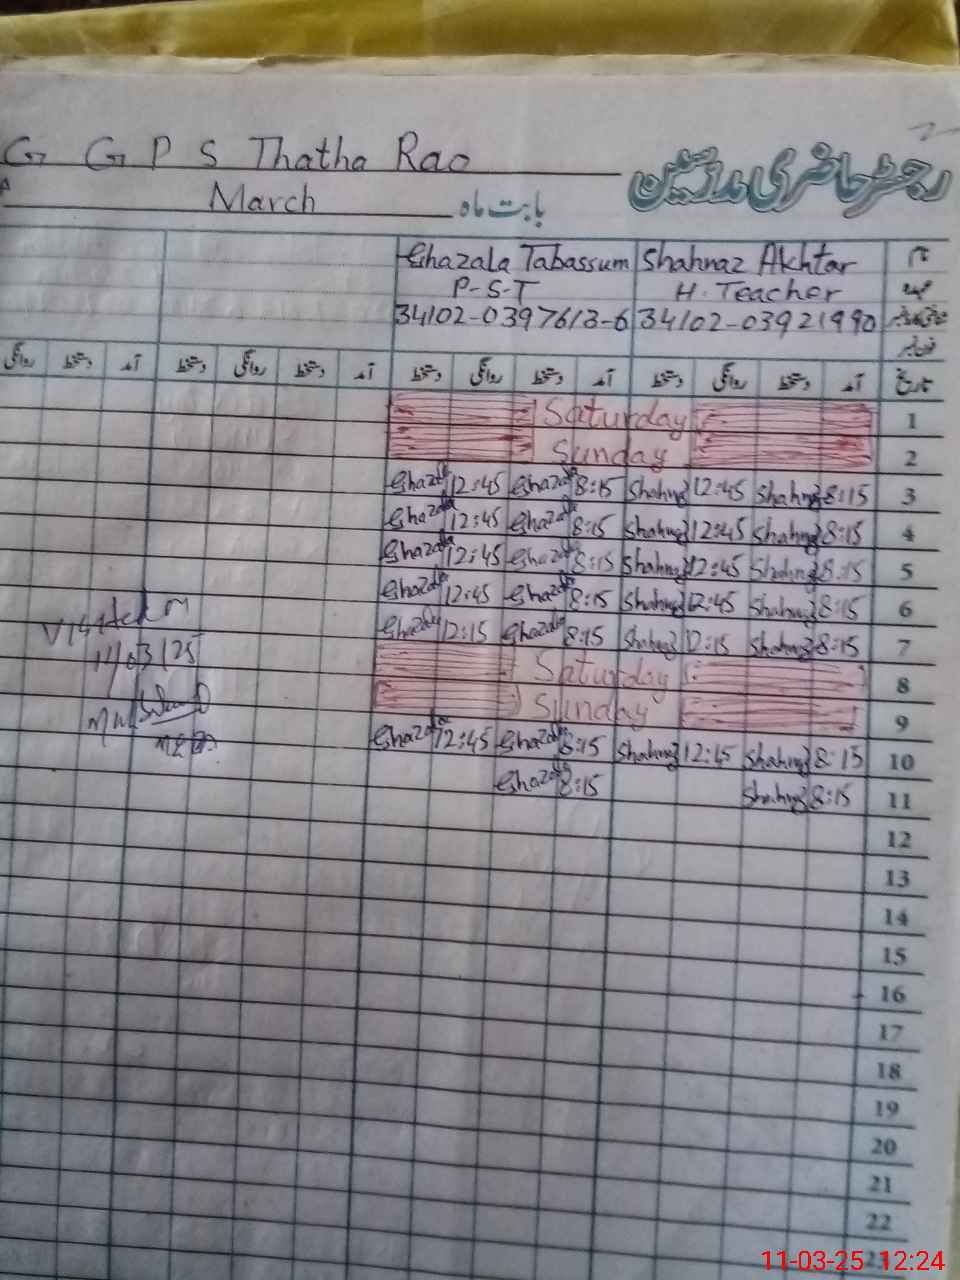 G G P S Thatha Rao
رجسٹر حاضری مدرسین
March بابت ماہ
نام Shahnaz Akhtar Ghazala Tabassum
عہدہ H. Teacher P-S-T
شناختی کارڈ نمبر 34102-03921990 34102-0397613-6
فون نمبر
تاریخ آمد دستخط روانگی دستخط آمد دستخط روانگی دستخط آمد دستخط روانگی دستخط آمد دستخط روانگی
Saturday 1
Sunday 2
Ghazala 12:45 Ghazala 8:15 Shahnaz 12:45 Shahnaz 8:15 3
Ghazala 12:45 Ghazala 8:15 Shahnaz 12:45 Shahnaz 8:15 4
Ghazala 12:45 Ghazala 8:15 Shahnaz 12:45 Shahnaz 8:15 5
Ghazala 12:45 Ghazala 8:15 Shahnaz 12:45 Shahnaz 8:15 6
Ghazala 12:15 Ghazala 8:15 Shahnaz 12:15 Shahnaz 8:15 7
Saturday 8
Sunday 9
Ghazala 12:45 Ghazala 8:15 Shahnaz 12:45 Shahnaz 8:15 10
Ghazala 8:15 Shahnaz 8:15 11
12
13
14
15
16
17
18
19
20
21
22
23
Visited on
11/03/25
11-03-25 12:24